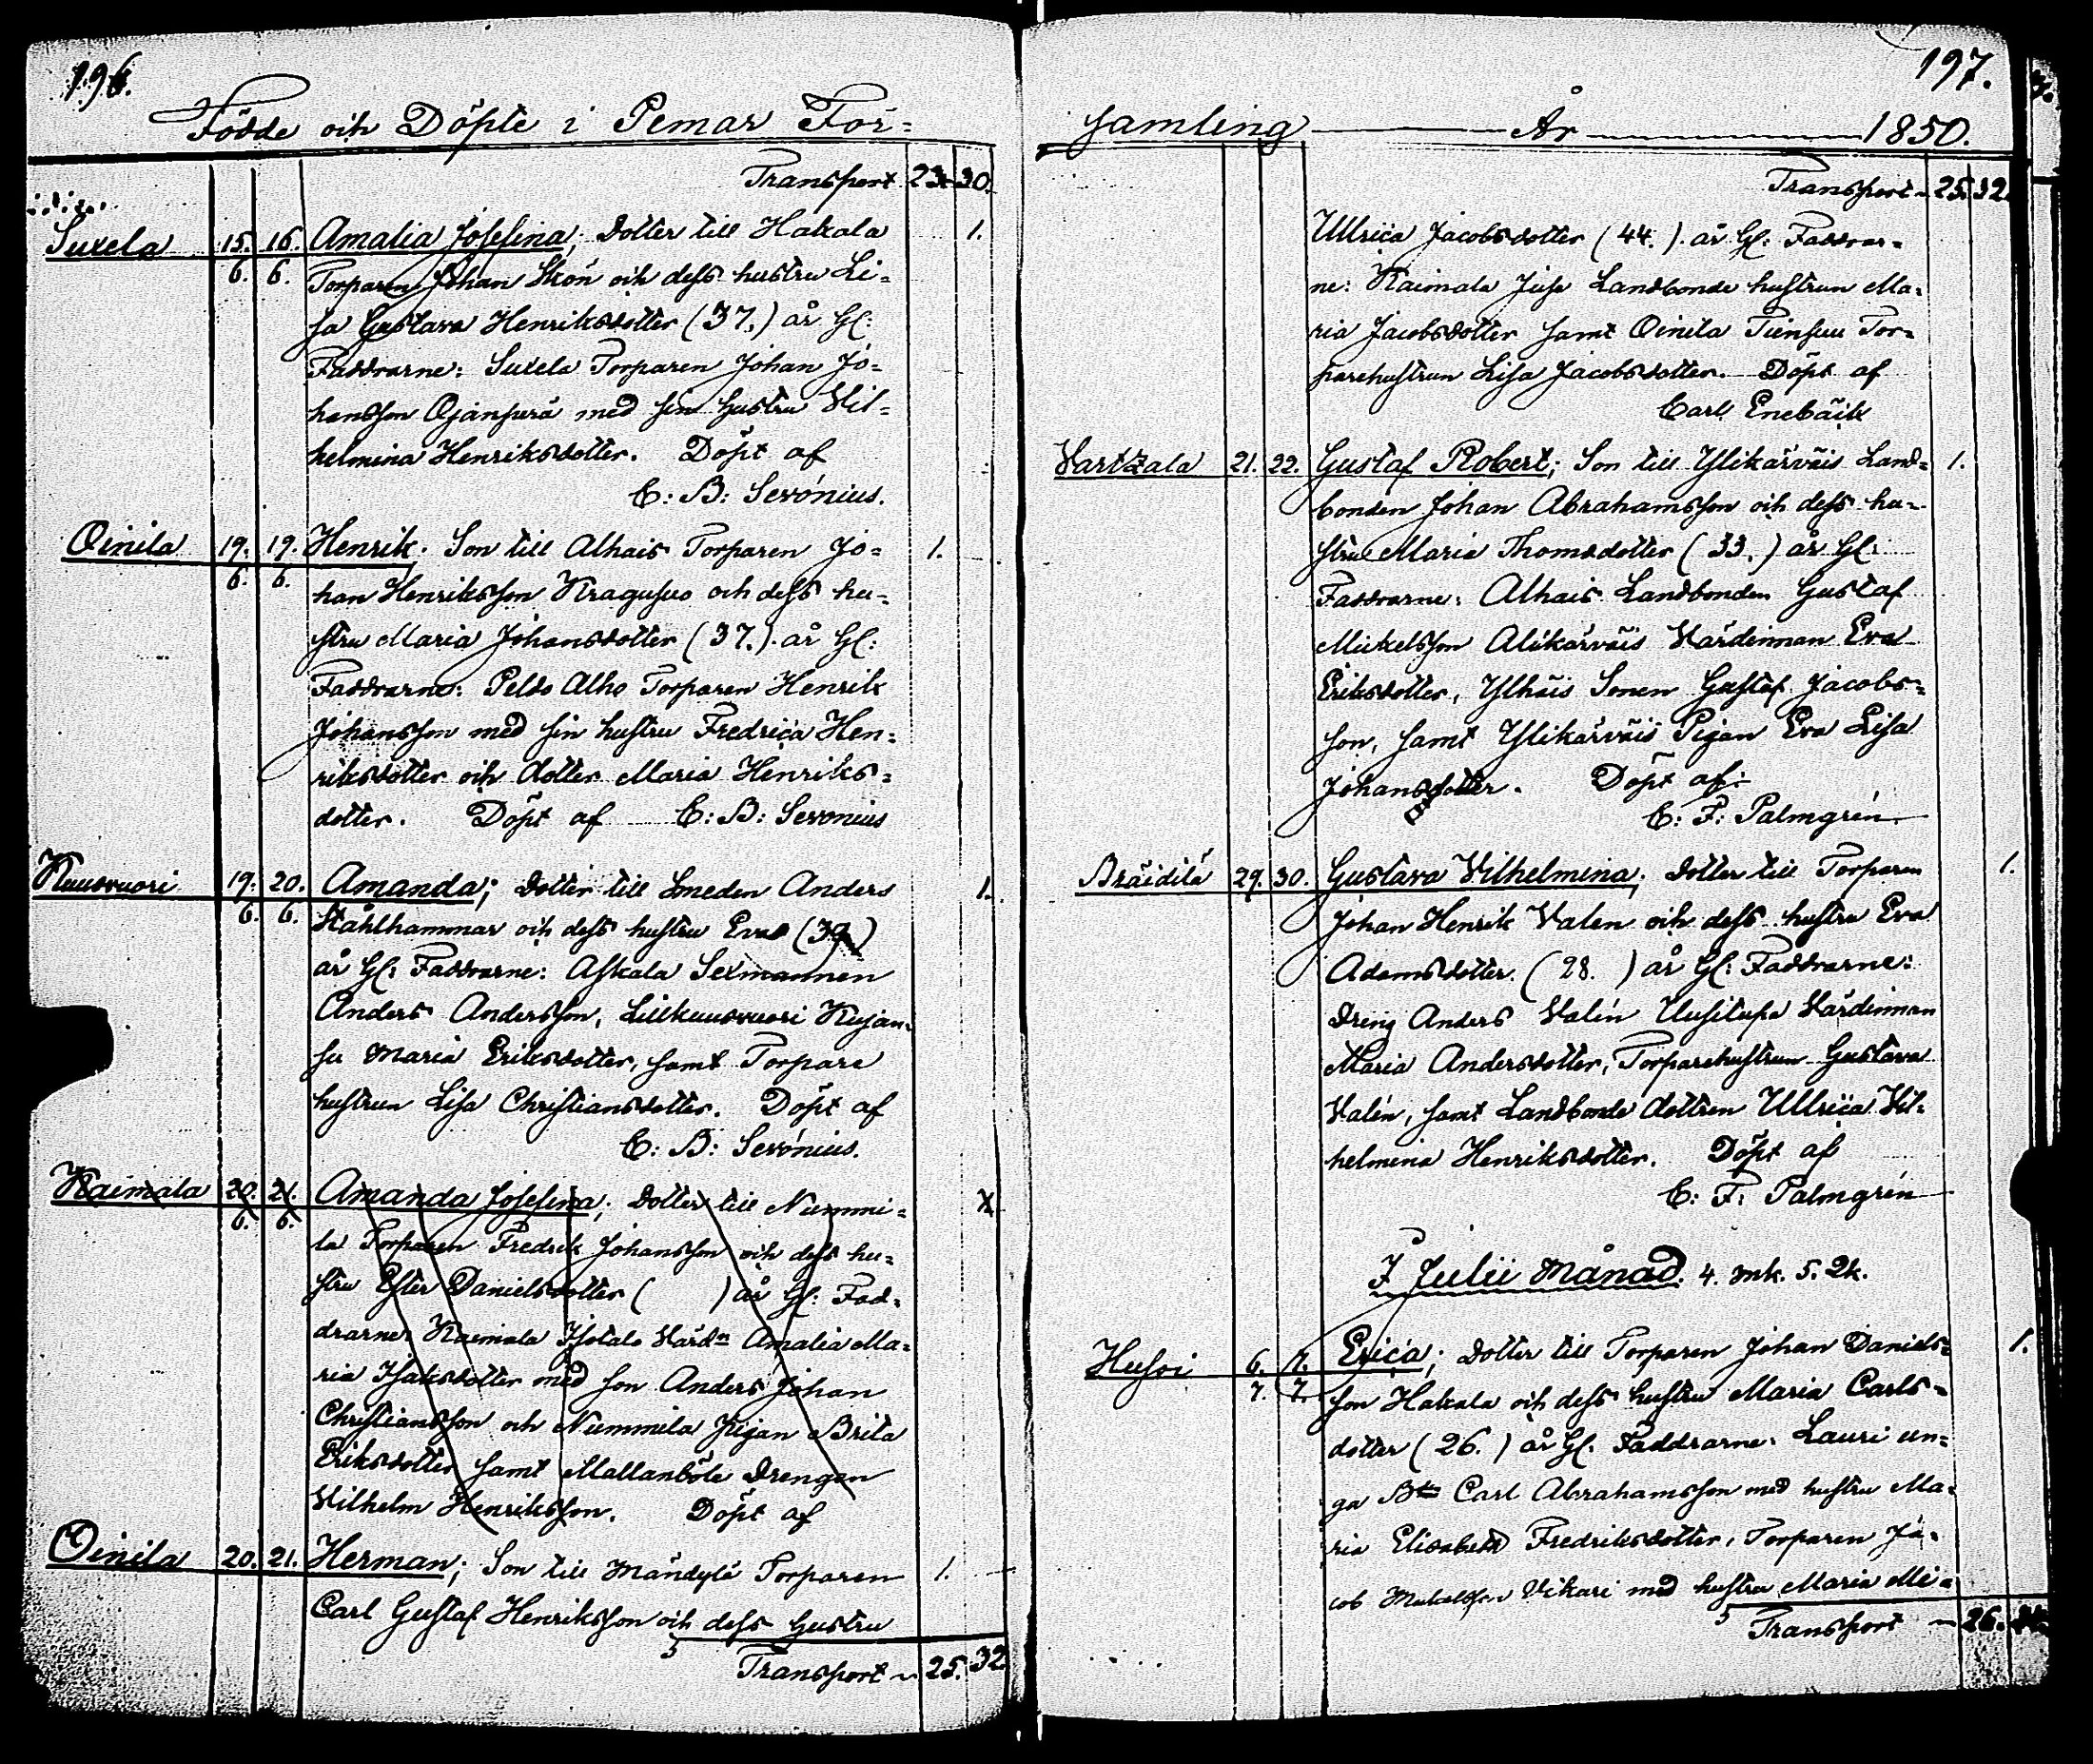 196.
Födde och Döpte i Pemar För=
Transport 23. 30.
Suxela 15. 16. Amalia Josefina; Dotter till Hakala 1.
6. 6. Torparen Johan Skön och dess hustru Li=
sa Gustava Henriksdotter (37.) år Gl:
Faddrarne: Suxela Torparen Johan Jo=
hansson Ojanperä med sin hustru Vil=
helmina Henriksdotter. Döpt af
C: B: Serónius.
Oinila 19. 19. Henrik. Son till Alhais Torparen Jo= 1.
6. 6. han Henriksson Kragusuo och dess hu=
stru Maria Johansdotter (37.) år Gl:
Faddrarne: Peldo Alho Torparen Henrik
Johansson med sin hustru Fredrica Hen=
riksdotter och dotter Maria Henriks=
dotter. Döpt af C: B: Seronius
Kuusvuori 19. 20. Amanda; Dotter till Smeden Anders 1.
6. 6. Stålhammar och dess hustru Eva (39)
år Gl: Faddrarne: Askala Sexmannen
Anders Andersson, Lillkuusvuori Kujan=
su Maria Eriksdotter, samt Torpare
hustrun Lisa Christiansdotter. Döpt af
C: B: Serónius.
Raimala 20. 21. Amanda Josefina; Dotter till Nummi=
6. 6. la Torparen Fredrik Johansson och dess hu=
stru Ester Danielsdotter ( ) år Gl: Fad=
drarne: Raimala Isotalo Värdn Amalia Ma=
ria Isaksdotter med son Anders Johan
Christiansson och Nummila Pigan Brita
Eriksdotter samt Mallanböle Drengen
Vilhelm Henriksson. Döpt af
Oinila 20. 21. Herman; Son till Mändylä Torparen 1.
Carl Gustaf Henriksson och dess hustru
Transport 25. 32.
197.
samling År 1850.
Transport 25. 32.
Ullrica Jacobsdotter (44.) år Gl: Faddrar=
ne: Raimala Juso Landbonde hustrun Ma=
ria Jacobsdotter samt Oinila Tiensuu Tor=
parehustrun Lisa Jacobsdotter. Döpt af
Carl Enebäck
Vartzala 21. 22. Gustaf Robert; Son till Ylikärväis Land= 1.
bonden Johan Abrahamsson och dess hu=
stru Maria Thomsdotter (33.) år Gl:
Faddrarne: Alhais Landbonden Gustaf
Mickelsson Alikärväis Värdinnan Eva
Eriksdotter, Ylhäis Sonen Gustaf Jacobs=
son, samt Ylikärväis Pigan Eva Lisa
Johansdotter. Döpt af:
C: F: Palmgrén
Bräidilä 29. 30. Gustava Vilhelmina; Dotter till Torparen 1.
Johan Henrik Valen och dess hustru Eva
Adamsdotter (28. ) år Gl: Faddrarne:
Dreng Anders Valén Uusitupa Värdinnan
Maria Andersdotter, Torparehustrun Gustava
Valén, samt Landbonde dottren Ullrica Vil=
helmina Henriksdotter. Döpt af
C: F: Palmgrén
I Julii Månad. 4. mk. 5. Qk.
Husoi 6. 7. Erica; Dotter till Torparen Johan Daniels= 1.
7. 7. son Hakala och dess hustru Maria Carls=
dotter (26.) år Gl. Faddrarne: Lauri un=
ga Carl Abrahamsson med hustru Ma=
ria Elisabeth Fredriksdotter, Torparen Ja=
cob Mickelsson Vikari med hustru Maria Mi=
Transport 26.